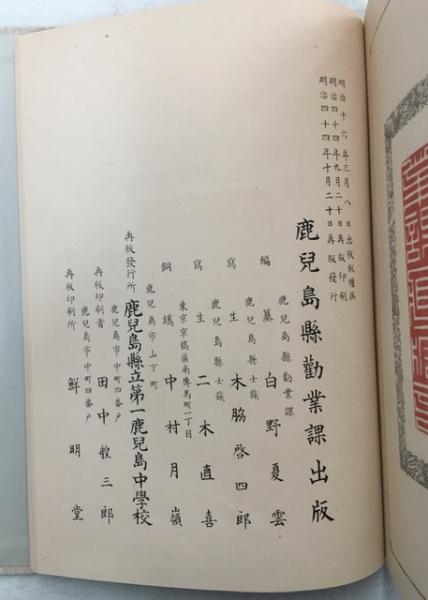 明治十六年三月八日出版板權届
明治四十四年九月二十日再板印刷
明治四十四年十月二十日再板發行
鹿兒島縣勸業課出版
鹿兒島縣勸業課
編纂 白野夏雲
鹿兒島縣士族
寫生 木脇啓四郎
鹿兒島縣士族
寫生 二木直喜
東京京橋區南傳馬町一丁目
銅鐫 中村月嶺
鹿兒島市山下町
再板發行所 鹿兒島縣立第一鹿兒島中學校
鹿兒島市中町四番戸
再板印刷者 田中程三郎
鹿兒島市中町四番戸
再板印刷所 鮮明堂